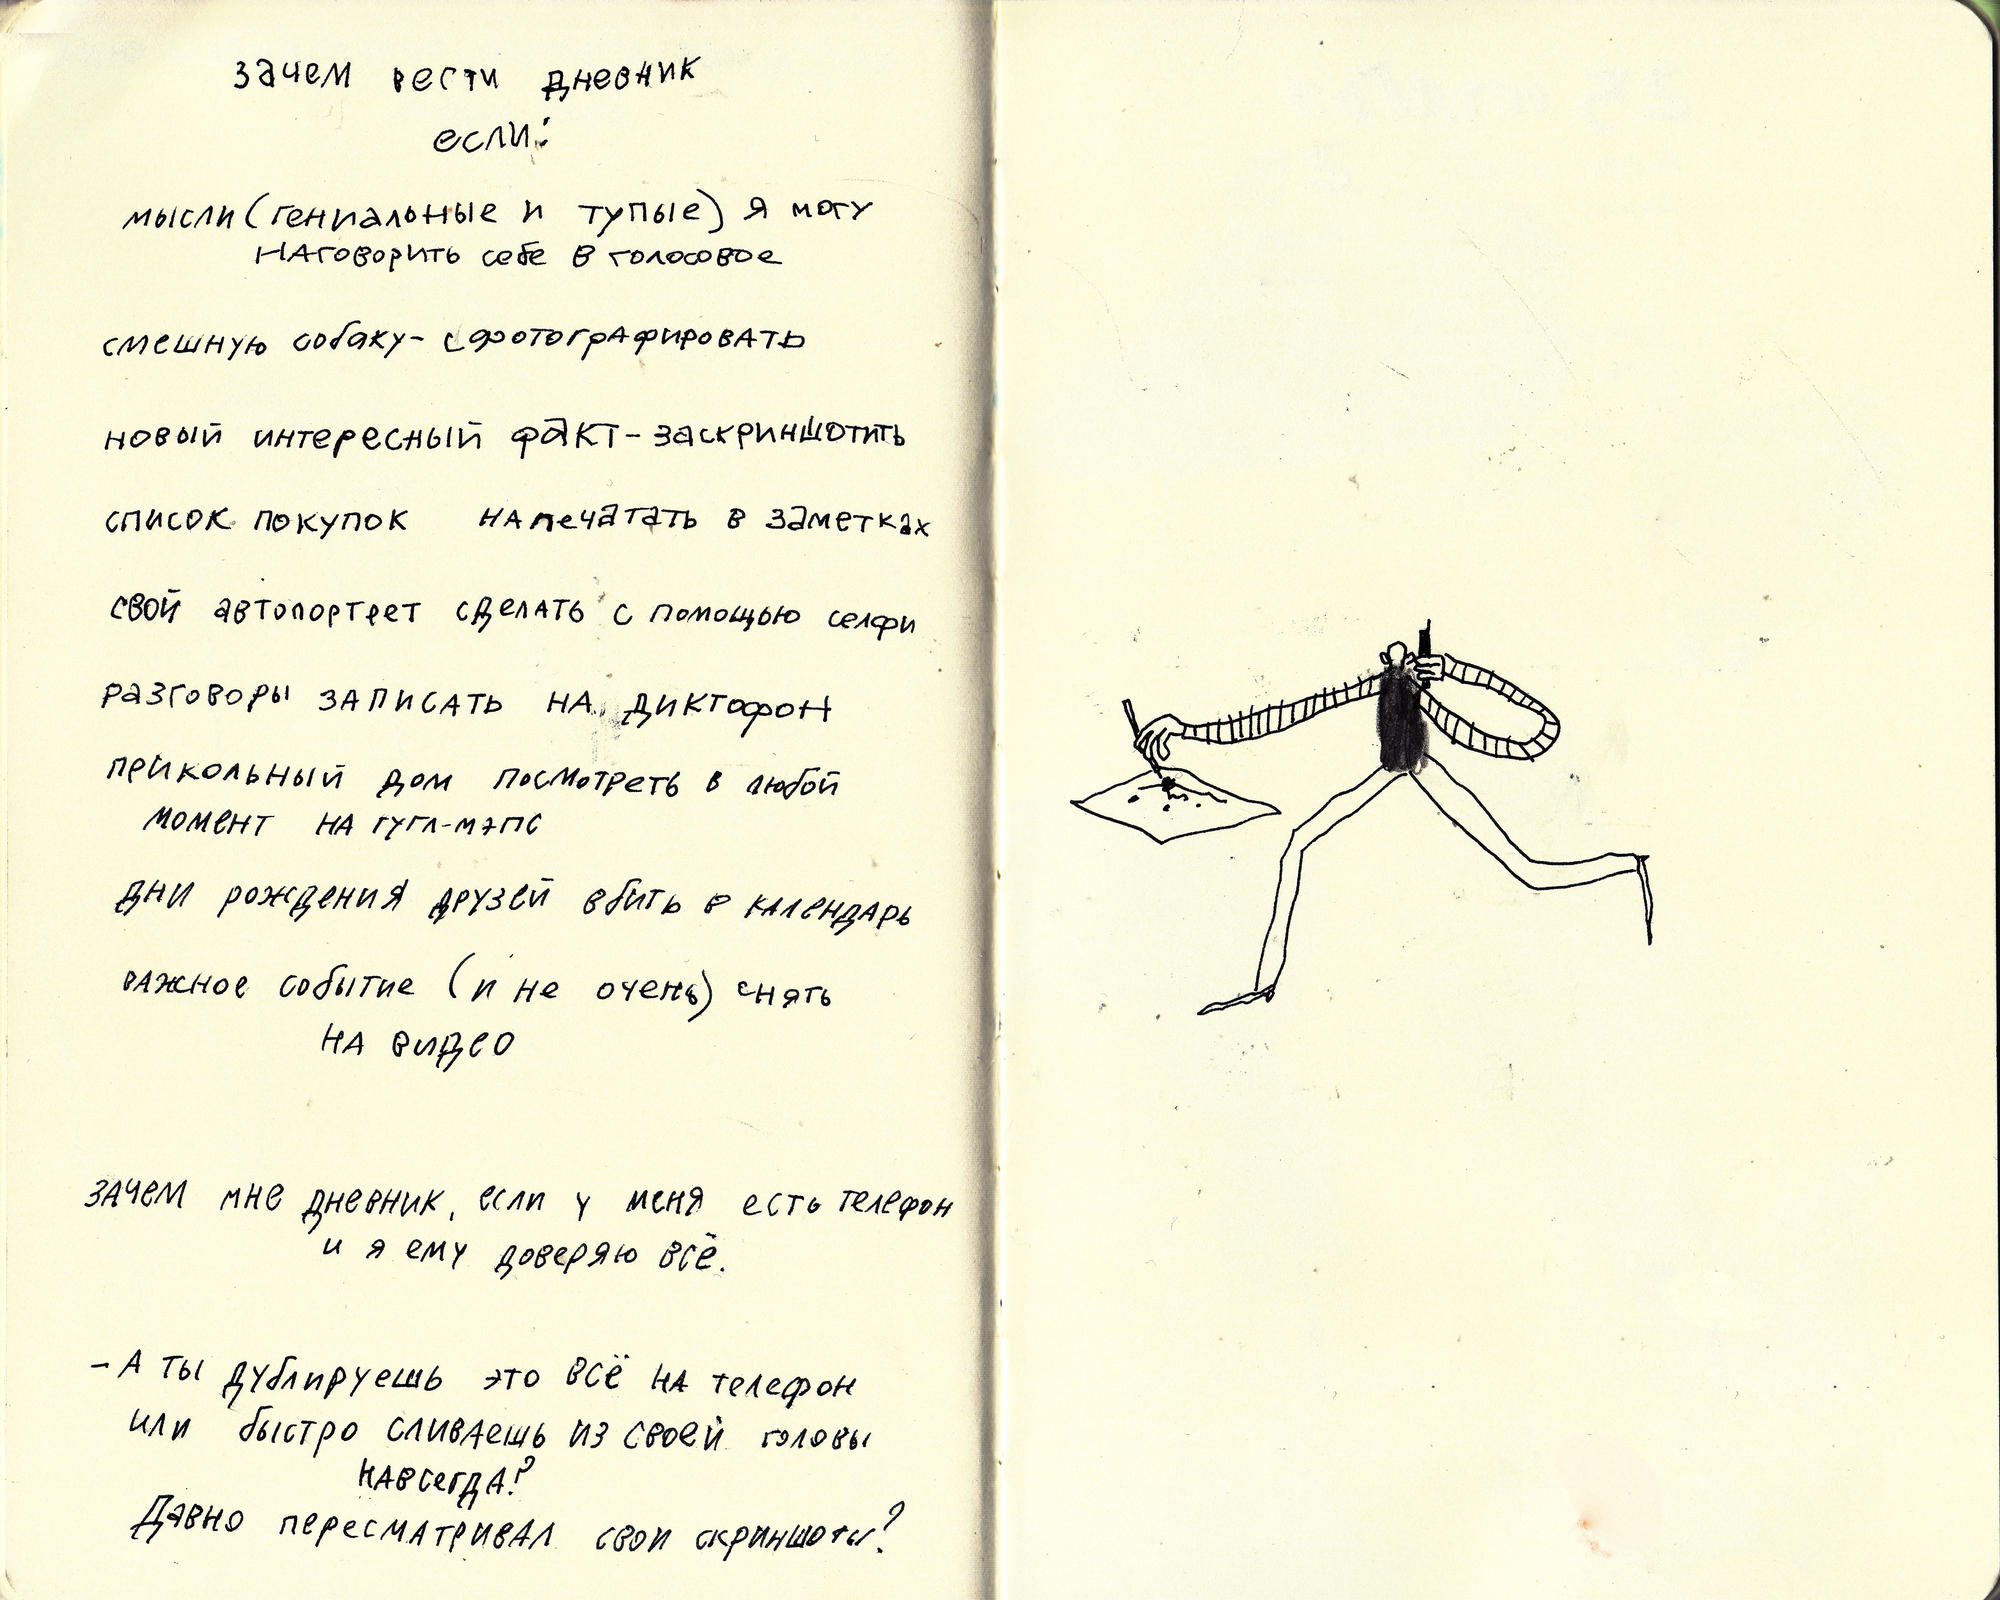 зачем вести дневник
если:
мысли (гениальные и тупые) я могу
наговорить себе в голосовое
смешную собаку - сфотографировать
новый интересный факт - заскриншотить
список покупок напечатать в заметках
свой автопортрет сделать с помощью селфи
разговоры записать на диктофон
прикольный дом посмотреть в любой
момент на гугл-мэпс
дни рождения друзей вбить в календарь
важное событие (и не очень) снять
на видео
зачем мне дневник, если у меня есть телефон
и я ему доверяю всё.
- А ты дублируешь это всё на телефон
или быстро сливаешь из своей головы
навсегда?
Давно пересматривал свои скриншоты?